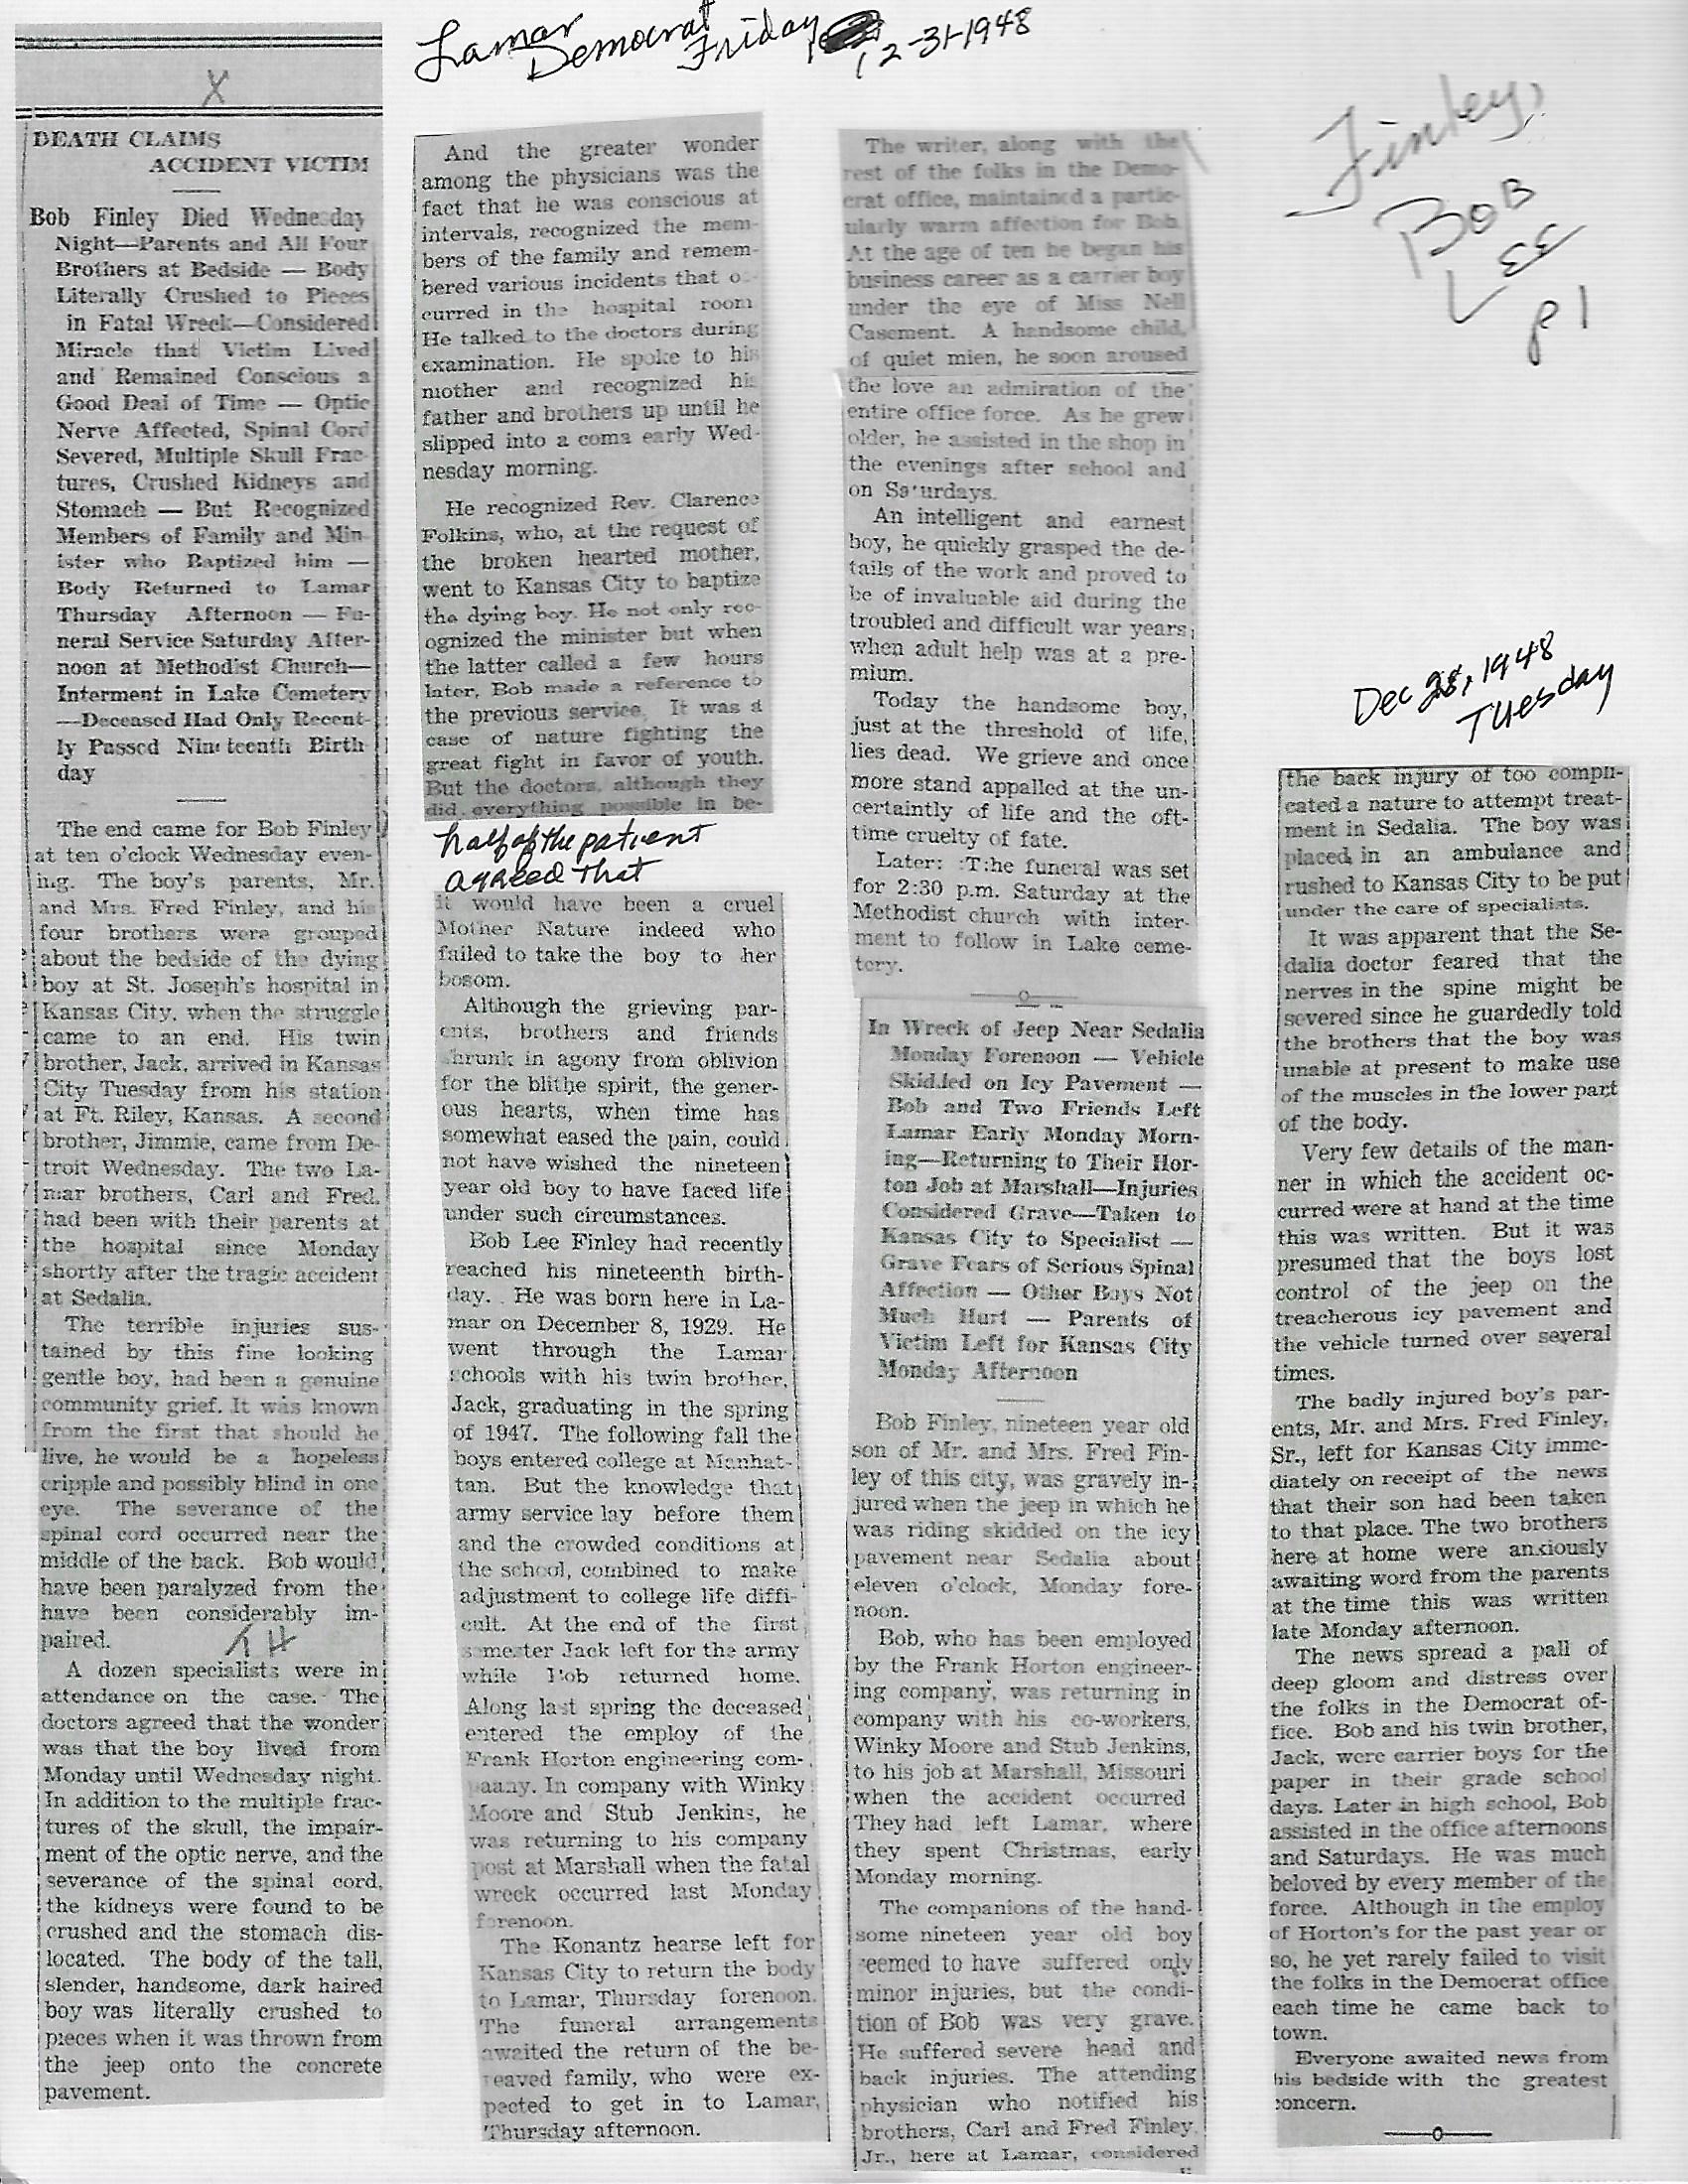 Lamar
Democrat
Friday 12-31-1948
Finley,
Bob
Lee
P1
X
DEATH CLAIMS
ACCIDENT VICTIM
Bob Finley Died Wednesday
Night—Parents and All Four
Brothers at Bedside — Body
Literally Crushed to Pieces
in Fatal Wreck—Considered
Miracle that Victim Lived
and Remained Conscious a
Good Deal of Time — Optic
Nerve Affected, Spinal Cord
Severed, Multiple Skull Frac-
tures, Crushed Kidneys and
Stomach — But Recognized
Members of Family and Min-
ister who Baptized him —
Body Returned to Lamar
Thursday Afternoon — Fu-
neral Service Saturday After-
noon at Methodist Church—
Interment in Lake Cemetery
—Deceased Had Only Recent-
ly Passed Nineteenth Birth
day
The end came for Bob Finley
at ten o'clock Wednesday even-
ing. The boy's parents, Mr.
and Mrs. Fred Finley, and his
four brothers were grouped
about the bedside of the dying
boy at St. Joseph's hospital in
Kansas City, when the struggle
came to an end. His twin
brother, Jack, arrived in Kansas
City Tuesday from his station
at Ft. Riley, Kansas. A second
brother, Jimmie, came from De-
troit Wednesday. The two La-
mar brothers, Carl and Fred,
had been with their parents at
the hospital since Monday
shortly after the tragic accident
at Sedalia.
The terrible injuries sus-
tained by this fine looking
gentle boy, had been a genuine
community grief. It was known
from the first that should he
live, he would be a hopeless
cripple and possibly blind in one
eye. The severance of the
spinal cord occurred near the
middle of the back. Bob would
have been paralyzed from the
have been considerably im-
paired.
TH
A dozen specialists were in
attendance on the case. The
doctors agreed that the wonder
was that the boy lived from
Monday until Wednesday night.
In addition to the multiple frac-
tures of the skull, the impair-
ment of the optic nerve, and the
severance of the spinal cord,
the kidneys were found to be
crushed and the stomach dis-
located. The body of the tall,
slender, handsome, dark haired
boy was literally crushed to
pieces when it was thrown from
the jeep onto the concrete
pavement.
And the greater wonder
among the physicians was the
fact that he was conscious at
intervals, recognized the mem-
bers of the family and remem-
bered various incidents that oc-
curred in the hospital room
He talked to the doctors during
examination. He spoke to his
mother and recognized his
father and brothers up until he
slipped into a coma early Wed-
nesday morning.
He recognized Rev. Clarence
Folkins, who, at the request of
the broken hearted mother,
went to Kansas City to baptize
the dying boy. He not only rec-
ognized the minister but when
the latter called a few hours
later, Bob made a reference to
the previous service. It was a
case of nature fighting the
great fight in favor of youth.
But the doctors, although they
did everything possible in be-
half of the patient
agreed that
it would have been a cruel
Mother Nature indeed who
failed to take the boy to her
bosom.
Although the grieving par-
ents, brothers and friends
shrunk in agony from oblivion
for the blithe spirit, the gener-
ous hearts, when time has
somewhat eased the pain, could
not have wished the nineteen
year old boy to have faced life
under such circumstances.
Bob Lee Finley had recently
reached his nineteenth birth-
day. He was born here in La-
mar on December 8, 1929. He
went through the Lamar
schools with his twin brother,
Jack, graduating in the spring
of 1947. The following fall the
boys entered college at Manhat-
tan. But the knowledge that
army service lay before them
and the crowded conditions at
the school, combined to make
adjustment to college life diffi-
cult. At the end of the first
semester Jack left for the army
while Bob returned home.
Along last spring the deceased
entered the employ of the
Frank Horton engineering com-
paany. In company with Winky
Moore and Stub Jenkins, he
was returning to his company
post at Marshall when the fatal
wreck occurred last Monday
forenoon.
The Konantz hearse left for
Kansas City to return the body
to Lamar, Thursday forenoon.
The funeral arrangements
awaited the return of the be-
reaved family, who were ex-
pected to get in to Lamar,
Thursday afternoon.
The writer, along with the
rest of the folks in the Demo-
crat office, maintained a partic-
ularly warm affection for Bob.
At the age of ten he began his
business career as a carrier boy
under the eye of Miss Nell
Casement. A handsome child,
of quiet mien, he soon aroused
the love an admiration of the
entire office force. As he grew
older, he assisted in the shop in
the evenings after school and
on Saturdays.
An intelligent and earnest
boy, he quickly grasped the de-
tails of the work and proved to
be of invaluable aid during the
troubled and difficult war years,
when adult help was at a pre-
mium.
Today the handsome boy,
just at the threshold of life,
lies dead. We grieve and once
more stand appalled at the un-
certaintly of life and the oft-
time cruelty of fate.
Later: :T:he funeral was set
for 2:30 p.m. Saturday at the
Methodist church with inter-
ment to follow in Lake ceme-
tery.
In Wreck of Jeep Near Sedalia
Monday Forenoon — Vehicle
Skidded on Icy Pavement —
Bob and Two Friends Left
Lamar Early Monday Morn-
ing—Returning to Their Hor-
ton Job at Marshall—Injuries
Considered Grave—Taken to
Kansas City to Specialist —
Grave Fears of Serious Spinal
Affection — Other Boys Not
Much Hurt — Parents of
Victim Left for Kansas City
Monday Afternoon
Bob Finley, nineteen year old
son of Mr. and Mrs. Fred Fin-
ley of this city, was gravely in-
jured when the jeep in which he
was riding skidded on the icy
pavement near Sedalia about
eleven o'clock, Monday fore-
noon.
Bob, who has been employed
by the Frank Horton engineer-
ing company, was returning in
company with his co-workers,
Winky Moore and Stub Jenkins,
to his job at Marshall, Missouri
when the accident occurred
They had left Lamar, where
they spent Christmas, early
Monday morning.
The companions of the hand-
some nineteen year old boy
seemed to have suffered only
minor injuries, but the condi-
tion of Bob was very grave.
He suffered severe head and
back injuries. The attending
physician who notified his
brothers, Carl and Fred Finley,
Jr., here at Lamar, considered
Dec 28, 1948
Tuesday
the back injury of too compli-
cated a nature to attempt treat-
ment in Sedalia. The boy was
placed in an ambulance and
rushed to Kansas City to be put
under the care of specialists.
It was apparent that the Se-
dalia doctor feared that the
nerves in the spine might be
severed since he guardedly told
the brothers that the boy was
unable at present to make use
of the muscles in the lower part
of the body.
Very few details of the man-
ner in which the accident oc-
curred were at hand at the time
this was written. But it was
presumed that the boys lost
control of the jeep on the
treacherous icy pavement and
the vehicle turned over several
times.
The badly injured boy's par-
ents, Mr. and Mrs. Fred Finley,
Sr., left for Kansas City imme-
diately on receipt of the news
that their son had been taken
to that place. The two brothers
here at home were anxiously
awaiting word from the parents
at the time this was written
late Monday afternoon.
The news spread a pall of
deep gloom and distress over
the folks in the Democrat of-
fice. Bob and his twin brother,
Jack, were carrier boys for the
paper in their grade school
days. Later in high school, Bob
assisted in the office afternoons
and Saturdays. He was much
beloved by every member of the
force. Although in the employ
of Horton's for the past year or
so, he yet rarely failed to visit
the folks in the Democrat office
each time he came back to
town.
Everyone awaited news from
his bedside with the greatest
concern.